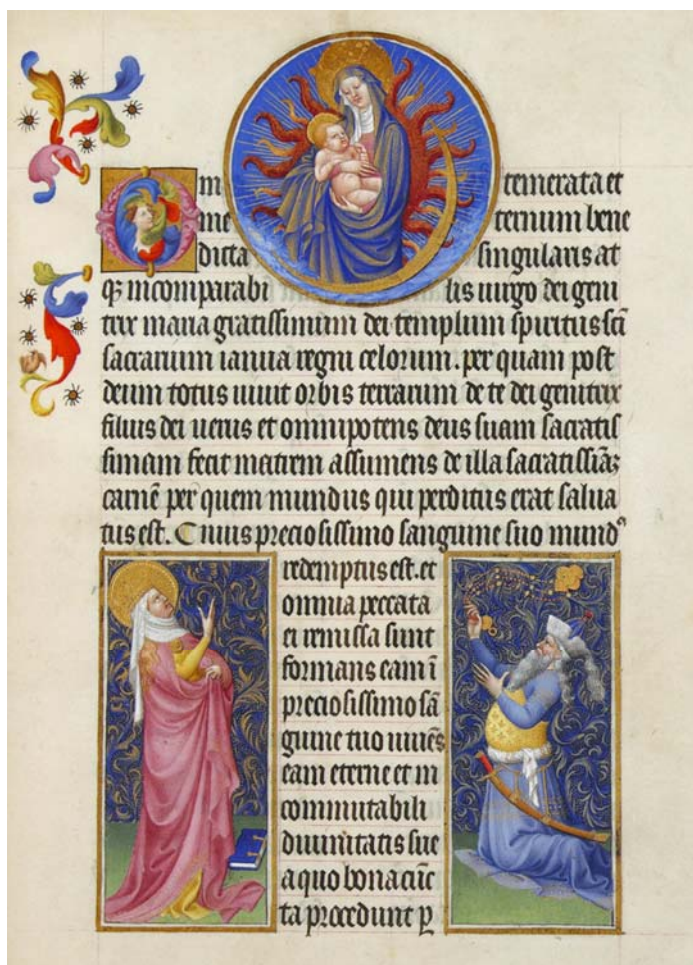 Om temerata et
me ternum bene
dicta singularis at
qꝫ incomparabi lis uirgo dei geni
trix maria gratissimum dei templum spiritus sci
sacrarium ianua regni celorum. per quam post
deum totus uiuit orbis terrarum de te dei genitrix
filius dei uerus et omnipotens deus suam sacratis
simam fecit matrem assumens de illa sacratissiãꝫ
carnē per quem mundus qui perditus erat salua
tus est. Cuius preciosissimo sanguine suo mundꝰ
redemptus est. et
omnia peccata
ei remissa sunt
formans eam ī
preciosissimo sā
guine tuo uiuēs
eam eterne et in
commutabili
diuinitatis sue
a quo bona cūc
ta procedunt ꝑ